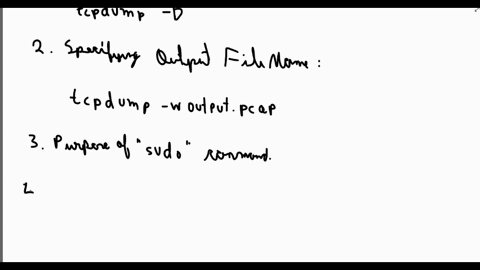 tcpdump -D
2. Specifying Output File Name :
tcpdump -w output.pcap
3. Purpose of "sudo" command.